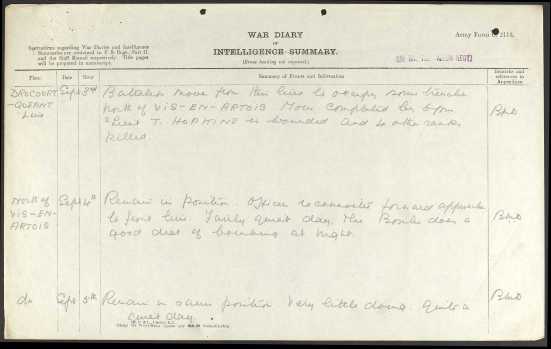 WAR DIARY
OF
INTELLIGENCE SUMMARY.
(Erase heading not required.)
Army Form C. 2118.
Instructions regarding War Diaries and Intelligence
Summaries are contained in F. S. Regs., Part II.
and the Staff Manual respectively. Title pages
will be prepared in manuscript.
Place Date Hour Summary of Events and Information Remarks and references to Appendices
DROCOURT Sept 3rd Battalion move from this line to occupy some trenches
-QUEANT North of VIS-EN-ARTOIS Move completed by 6 pm
Line Lieut T. HOPKINS is wounded and other ranks
killed.
North of Sept 4th Remain in position. Officers reconnoitre forward approaches
VIS-EN- to front line. Fairly quiet day. The Boche does a
ARTOIS good deal of bombing at night.
do Sept 5th Remain in same position Very little doing. Quite a
quiet day.